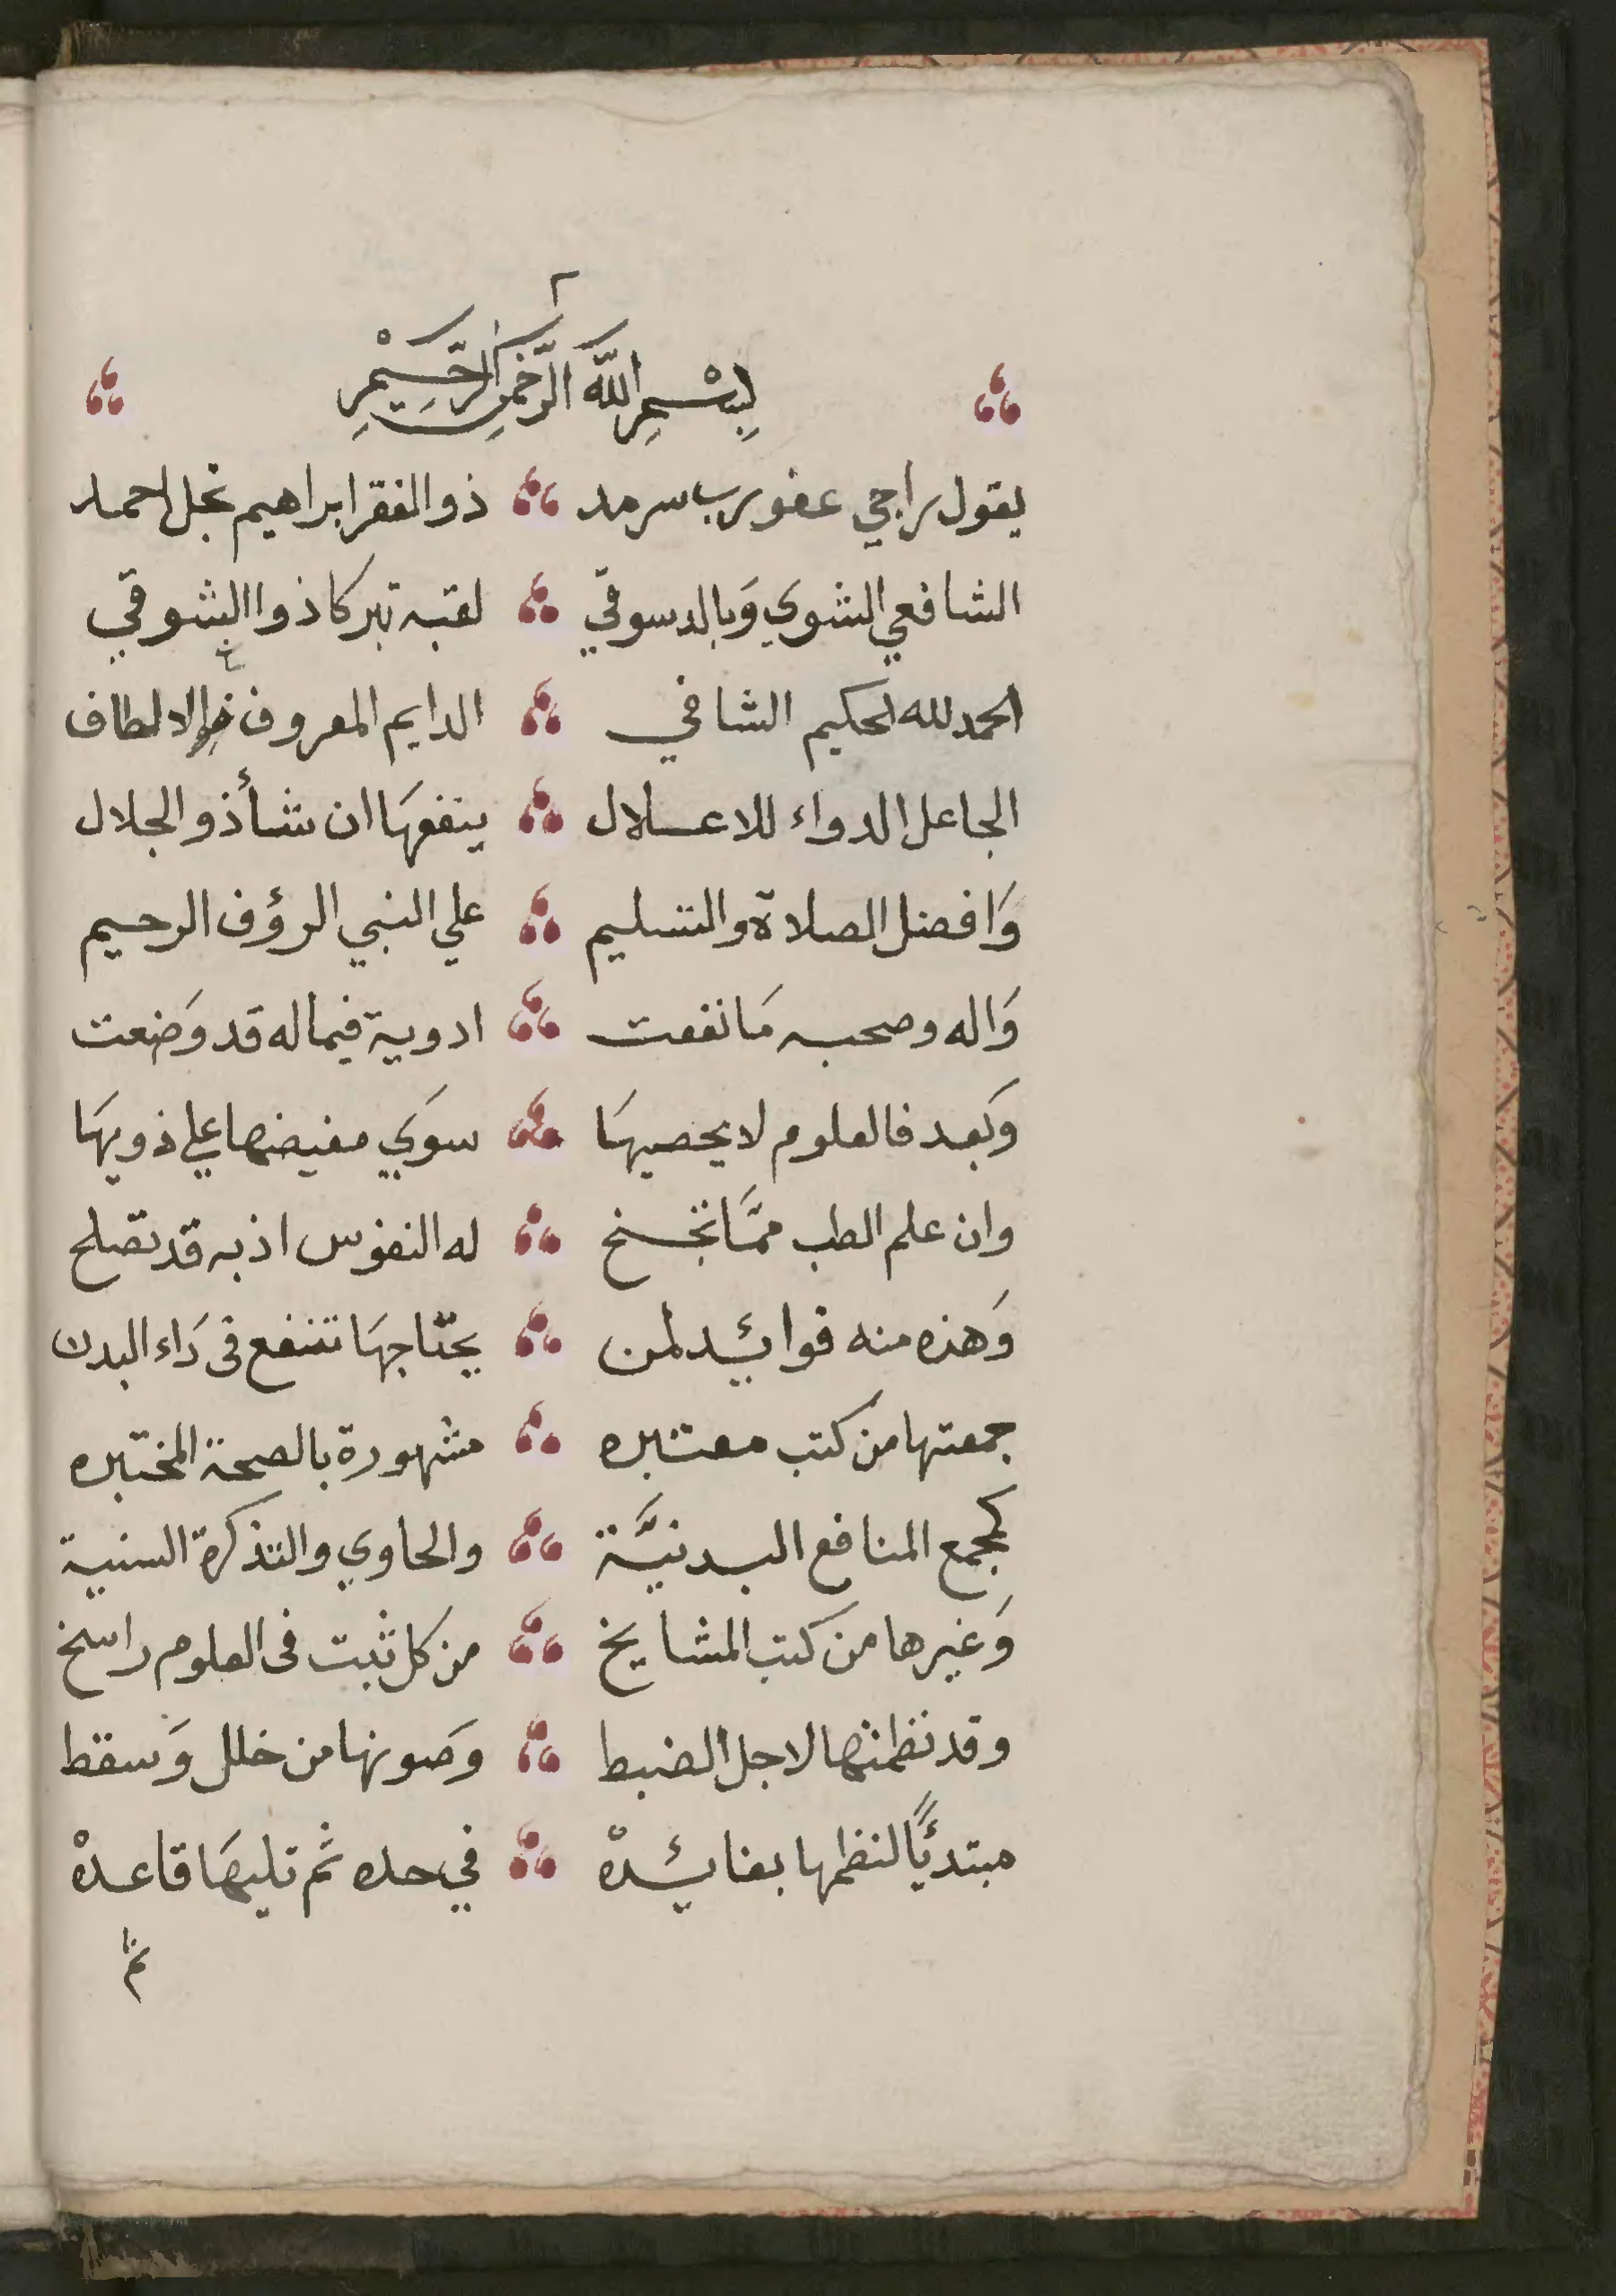 ٢
بِسْمِ اللَّه الرَّحْمنِ الرَّحِيْمِ
يقول راجي عفو رب سرمد ذو الفقر ابراهيم نجل احمد
الشافعي الشوي وَبالدسوقي لقبه تبركا ذوا الشوقي
الحمد لله الحكيم الشافي الدايم المعروف والالطاف
الجاعل الدواء للاعلال ينفعهَا ان شأ ذو الجلال
وَافضل الصلاة والتسليم علي النبي الرؤف الرحيم
وَاله وصحبه مَا نفعت ادوية فيما له قد وَضعت
وَبعد فالعلوم لا يحصيهَا سوَي مفيضها علي ذويهَا
وان علم الطب ممَّا تجنح له النفوس اذ به قد تصلح
وَهذه منه فوائد لمن يحتاجهَا تنفع فى دَاء البدن
جمعتها من كتب معتبره مشهورة بالصحة المختبره
كمجمع المنافع البدنيَّة والحاوي والتذكرة السنية
وَغيرها من كتب المشايخ من كل ثبت فى العلوم راسخ
وقد نظمتها لاجل الضبط وَصونها من خلل وَسقط
مبتدئًا لنظمها بفائدهْ في حده ثم تليهَا قاعدهْ
ثم